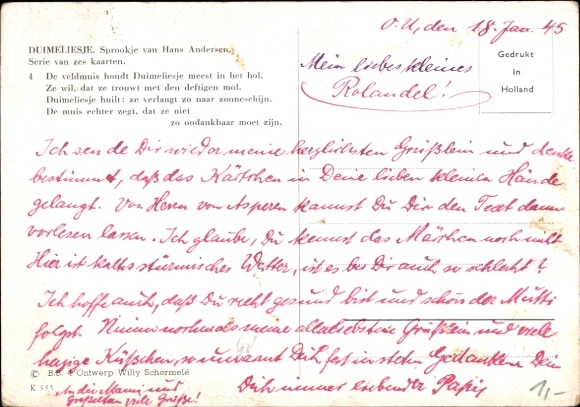 O.U., den 18. Jan. 45
DUIMELIESJE. Sprookje van Hans Andersen.
Serie van zes kaarten.
4 De veldmuis houdt Duimeliesje meest in het hol.
Ze wil, dat ze trouwt met den deftigen mol.
Duimeliesje huilt: ze verlangt zo naar zonneschijn.
De muis echter zegt, dat ze niet
zo ondankbaar moet zijn.
Gedrukt
in
Holland
Mein liebes kleines
Rolandel!
Ich sende Dir wieder meine herzliebsten Grüßlein und denke
bestimmt, daß das Kärtchen in Deine lieben kleinen Hände
gelangt. Von Herrn von Asperen kannst Du Dir den Text dann
vorlesen lassen. Ich glaube, Du kennst das Märchen noch nicht
Hier ist kaltes stürmisches Wetter, ist es bei Dir auch so schlecht?
Ich hoffe auch, daß Du recht gesund bist und schön der Mutti
folgst. Nimm nochmals meine allerliebsten Grüßlein und viele
herzige Küßchen, umarmt Dich fest in steten Gedanken Dein
Dich immer liebender Papi
© B.B. Ontwerp Willy Schermelé
K 553
An die Mami und
Großeltern viele Grüße!
1,-